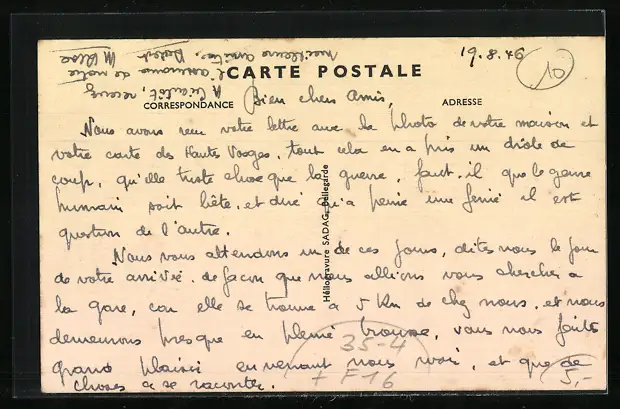 19.8.46
10
CARTE POSTALE
CORRESPONDANCE
ADRESSE
Bien chers Amis,
Nous avons reçu votre lettre avec la photo de votre maison et
votre carte des Hautes Vosges, tout cela en a pris un drôle de
coup, qu'elle triste chose que la guerre, faut-il que le genre
humain soit bête, et dire qu'à peine une finie il est
question de l'autre.
Nous vous attendons un de ces jours, dites nous le jour
de votre arrivée, de façon que nous allions vous chercher à
la gare, car elle se trouve à 5 Km de chez nous, et nous
demeurons presque en pleine brousse, vous nous faites
grand plaisir en venant nous voir, et que de
choses à se raconter.
A bientôt, recevez
l'assurance de notre
meilleure amitié. Robert
Héliogravure SADAG, Bellegarde
35-4
+ F16
5,-